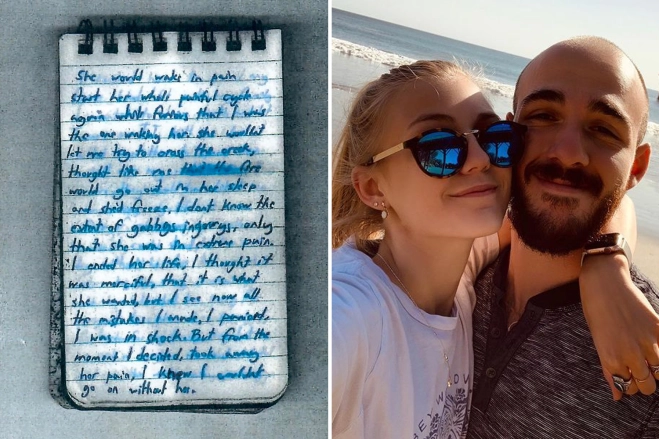 She would wake in pain
start her whole painful cycle
again while furious that I was
the one waking her. She wouldn't
let me try to cross the creek,
thought like me the fire
would go out in her sleep
and she'd freeze. I don't know the
extent of gabbys ingurys, only
that she was in extreme pain.
I ended her life, I thought it
was merciful, that it is what
she wanted, but I see now all
the mistakes I made. I panicked,
I was in shock. But from the
moment I decided, took away
her pain, I knew I wouldn't
go on without her.